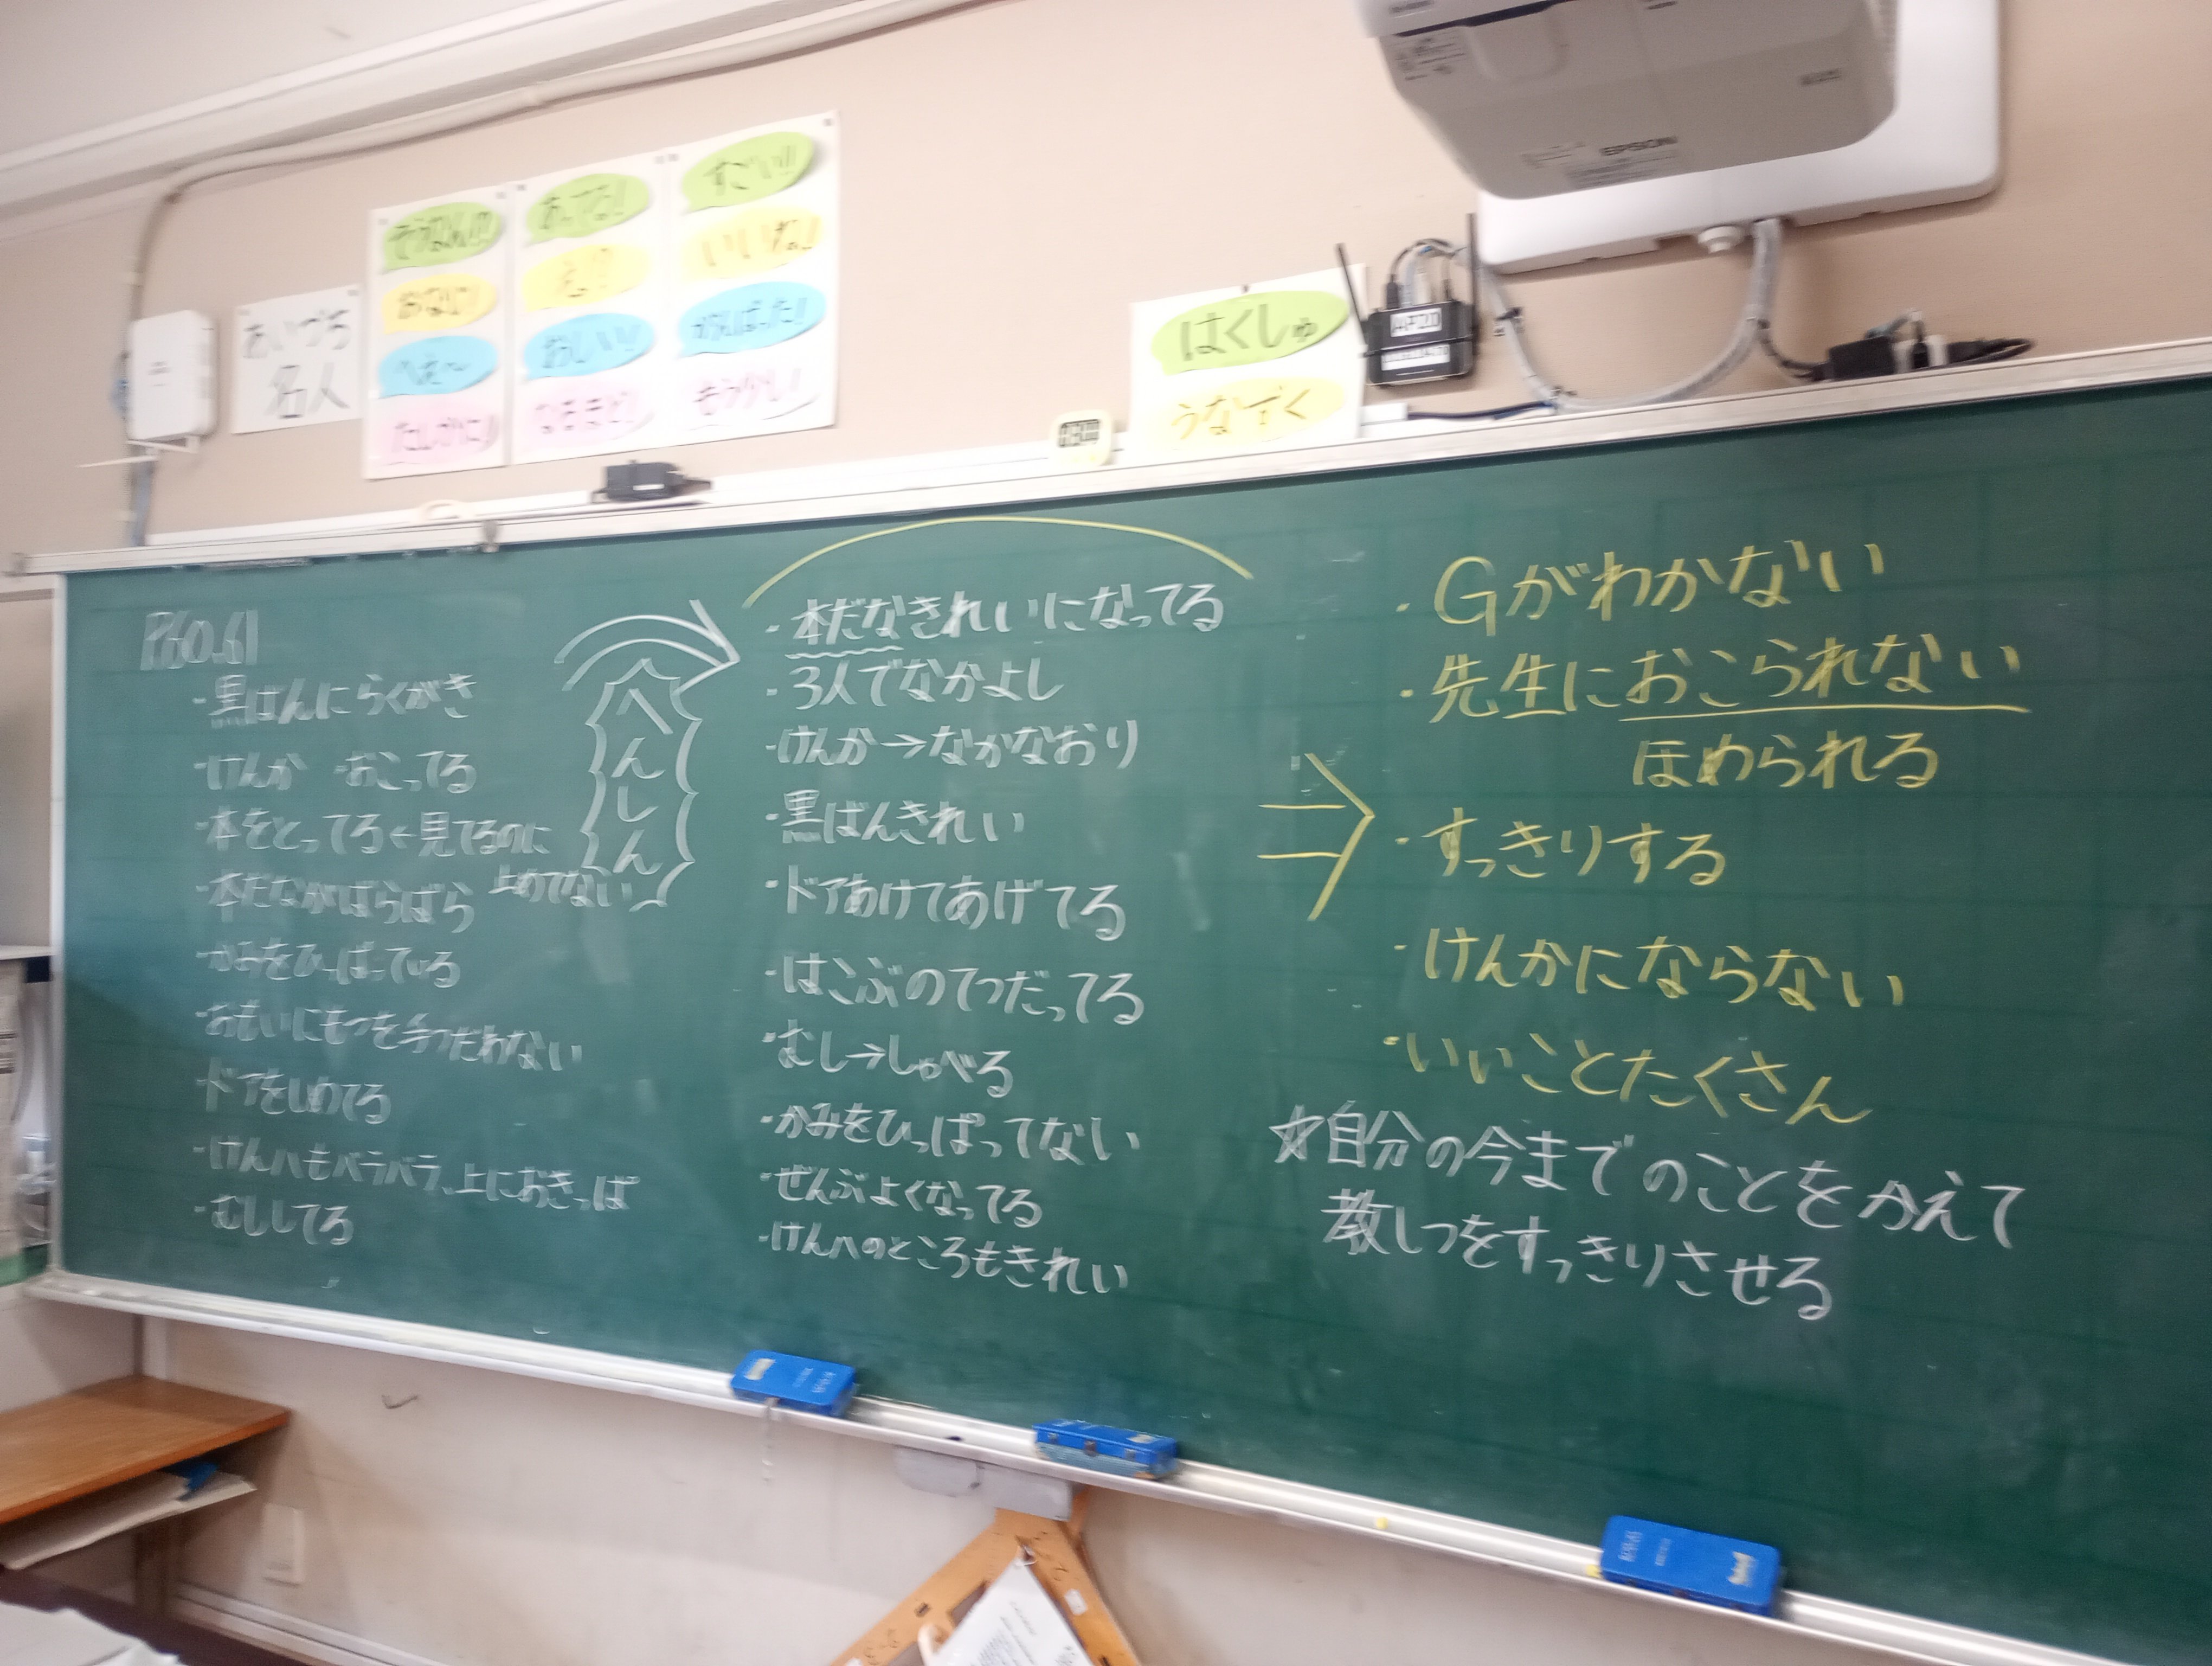 あいづち
名人
そうなんだ!!
おなじ!
へえ〜
たしかに!
あってる!
え?
おしい!!
なるほど!
すごい!!
いいね!
がんばった!
もう少し!
はくしゅ
うなずく
EPSON
AP20
P60.61
・黒ばんにらくがき
・けんか ・おこってる
・本をとってる←見てるのに
止めてない
・本だながばらばら
・かみをひっぱっている
・おもいにもつを手つだわない
・ドアをしめてる
・けんハもバラバラ、上におきっぱ
・むししてる
へんしん
・本だなきれいになってる
・3人でなかよし
・けんか→なかなおり
・黒ばんきれい
・ドアあけてあげてる
・はこぶのてつだってる
・むし→しゃべる
・かみをひっぱってない
・ぜんぶよくなってる
・けんハのところもきれい
・Gがわかない
・先生におこられない
ほめられる
・すっきりする
・けんかにならない
・いいことたくさん
☆自分の今までのことをかえて
教しつをすっきりさせる